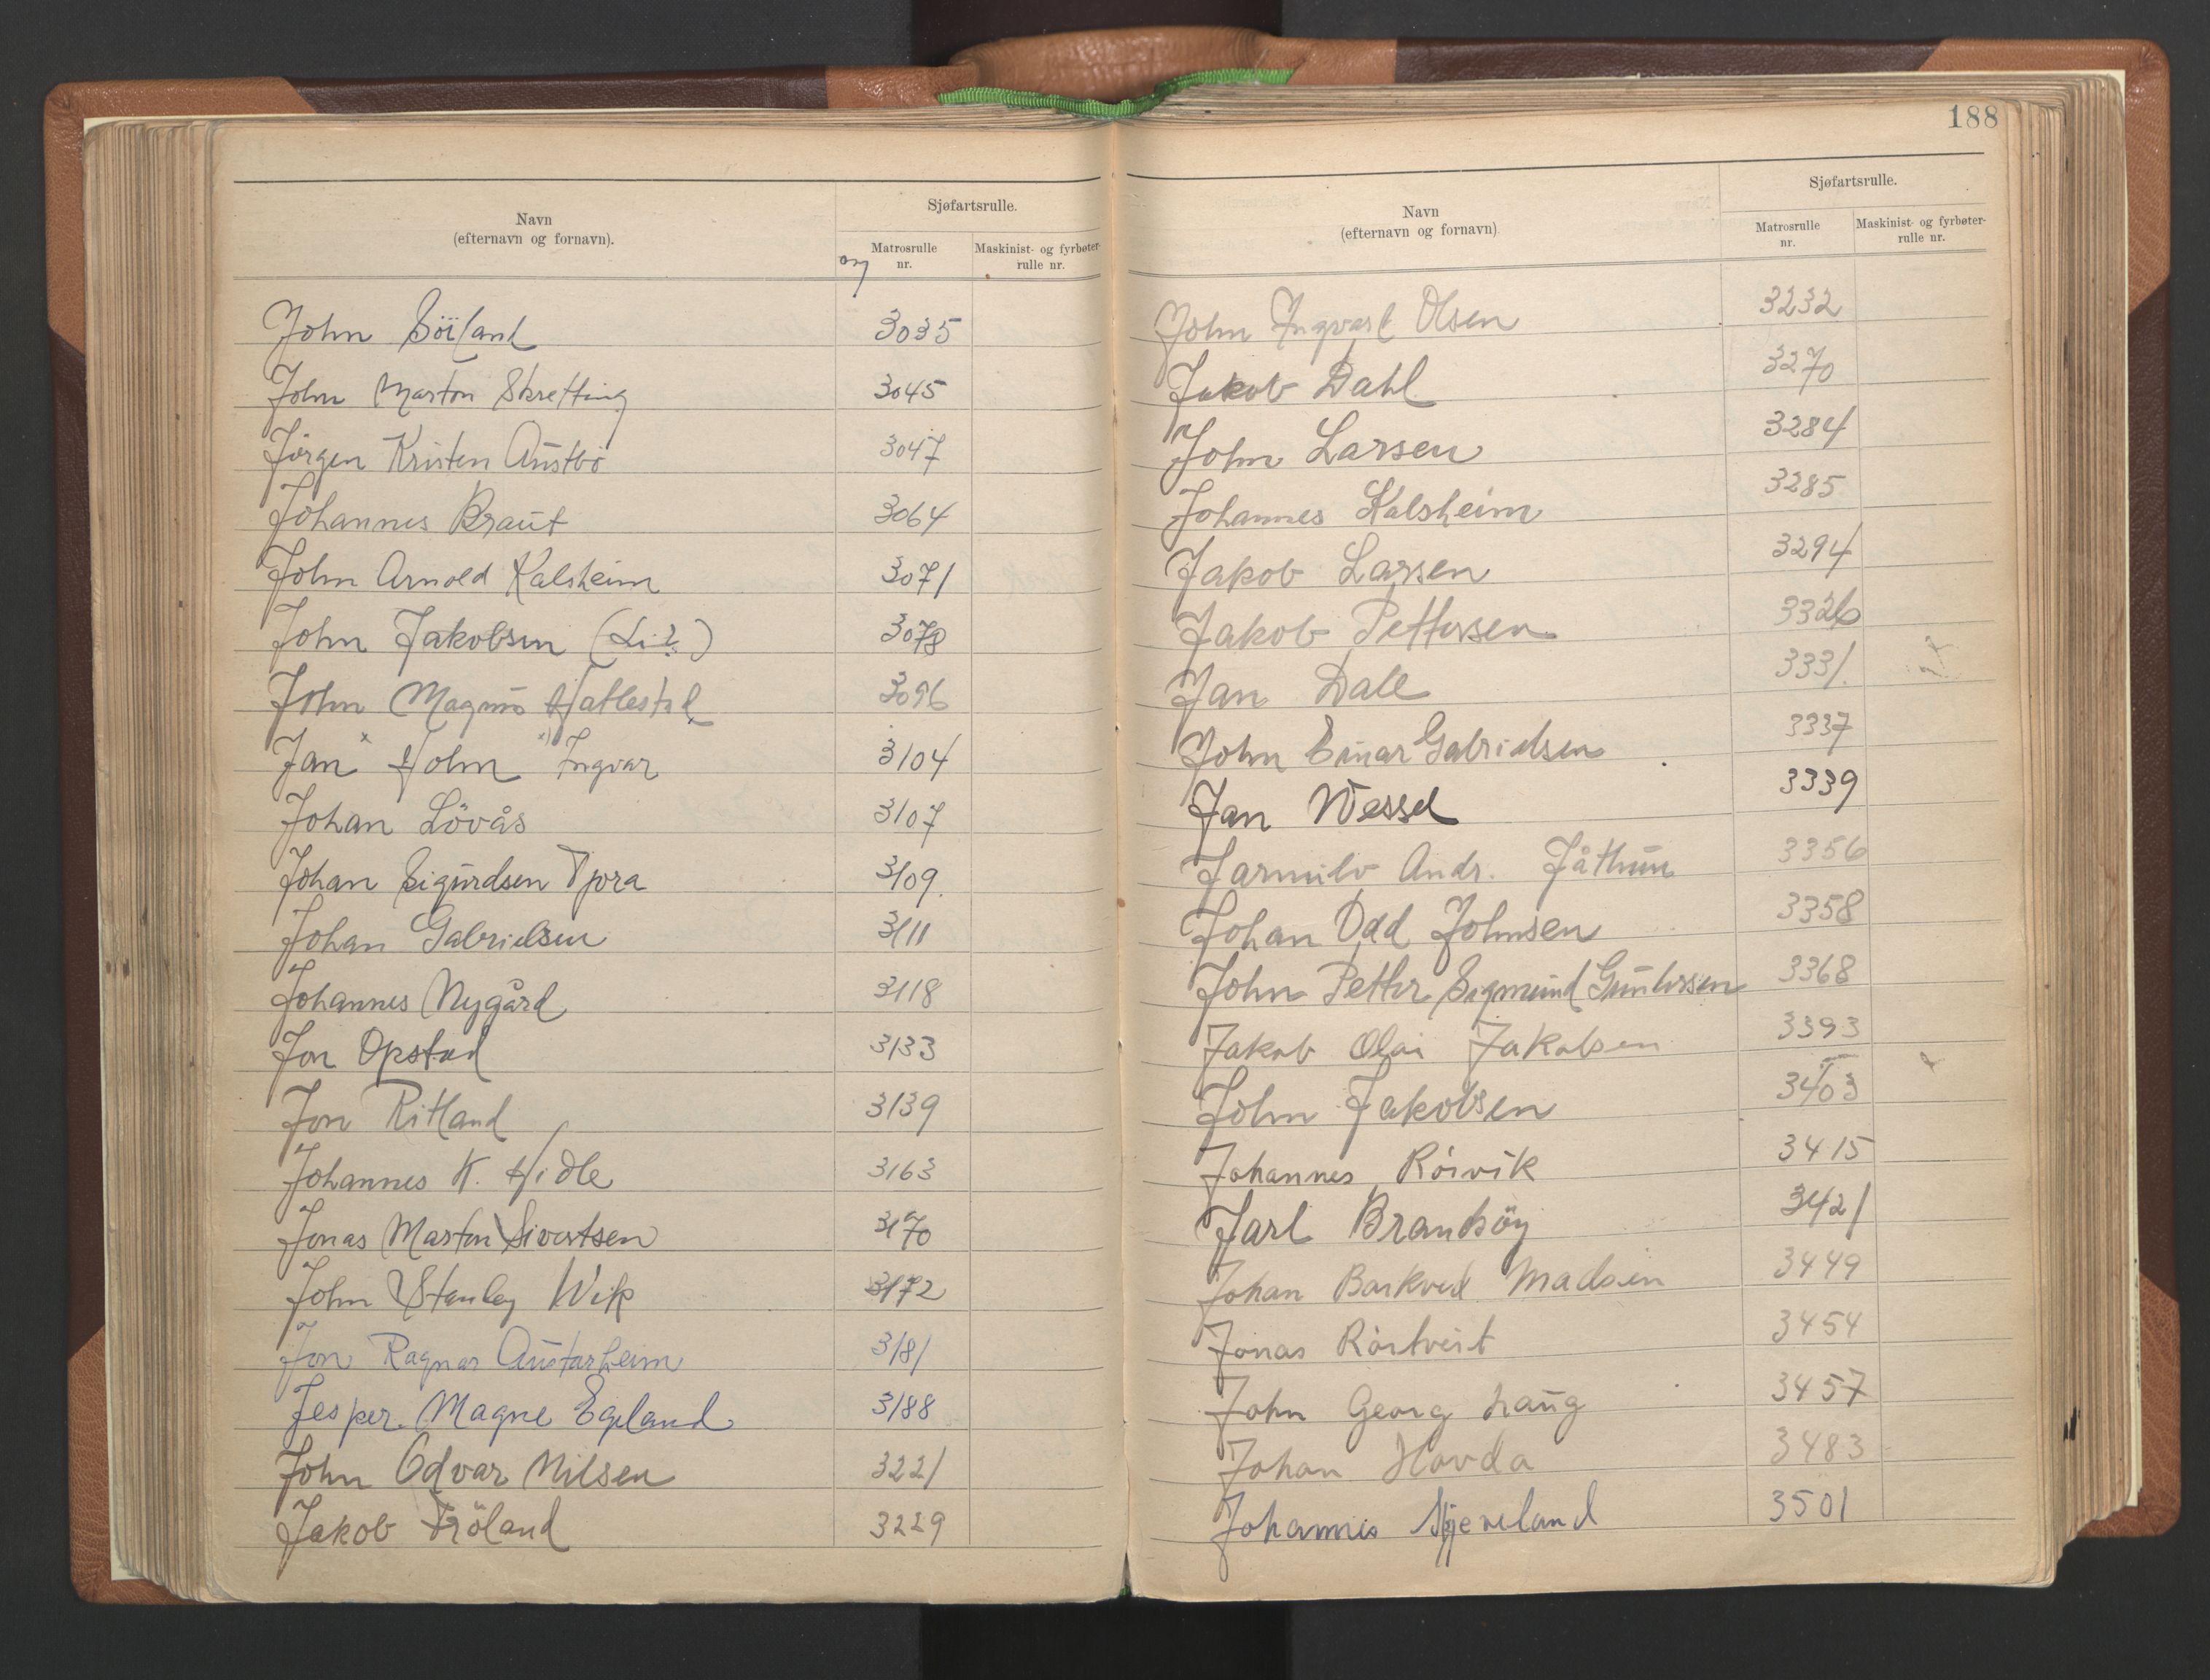 188
Navn
(efternavn og fornavn).
Sjøfartsrulle.
Matrosrulle
nr.
Maskinist- og fyrbøter-
rulle nr.
John Söiland 3035
John Marton Skretting 3045
Jörgen Kristen Austbö 3047
Johannes Braut 3064
John Arnold Kalsheim 3071
John Jakobsen 3078
John Magnus Hatlestad 3096
Jan Holm Ingvar 3104
Johan Lövås 3107
Johan Sigurdsen Tjora 3109.
Johan Gabrielsen 3111
Johannes Nygård 3118
Jon Opstad 3133
Jon Ritland 3139
Johannes K. Hidle 3163
Jonas Marton Sivertsen 3170
John Stanley Wik 3172
Jon Ragnar Austarheim 3181
Jesper Magne Egeland 3188
John Odvar Nilsen 3221
Jakob Fröland 3229
Navn
(efternavn og fornavn)
Sjøfartsrulle.
Matrosrulle
nr.
Maskinist- og fyrbøter-
rulle nr.
John Ingvart Olsen 3232
Jakob Dahl 3270
John Larsen 3284
Johannes Kalsheim 3285
Jakob Larsen 3294
Jakob Pettersen 3326
Jan Dale 3331.
John Einar Gabrielsen 3337
Jan Wessel 3339
Jarmulv Andr. Jåthun 3356
Johan Odd Johnsen 3358
John Petter Sigmund Gundersen 3368
Jakob Olai Jakobsen 3393
John Jakobsen 3403
Johannes Röivik 3415
Jarl Brandsöy 3421
Johan Barkved Madsen 3449
Jonas Rörtveit 3454
John Georg Haug 3457
Johan Hovda 3483
Johannes Skjeveland 3501